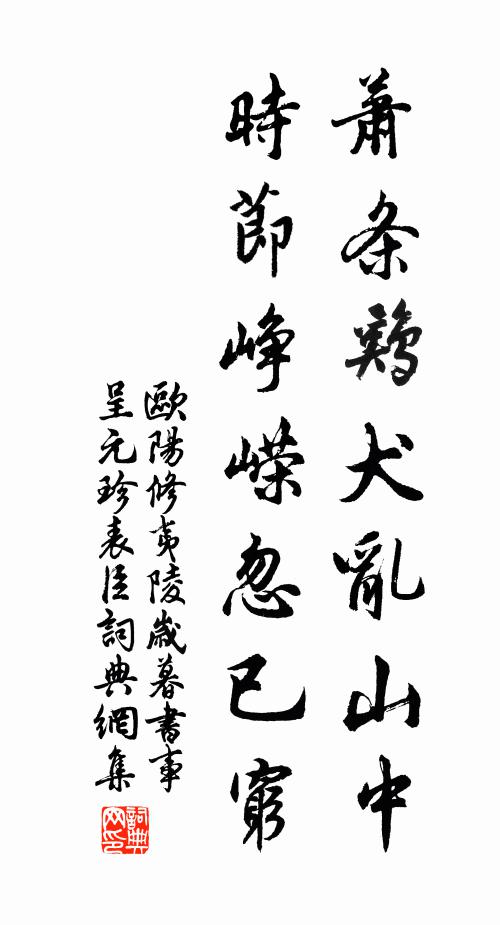 蕭条鷄犬亂山中
時節峥嶸忽已窮
歐陽修夷陵歲暮書事
呈元珍表臣詞典網集
詞典網印